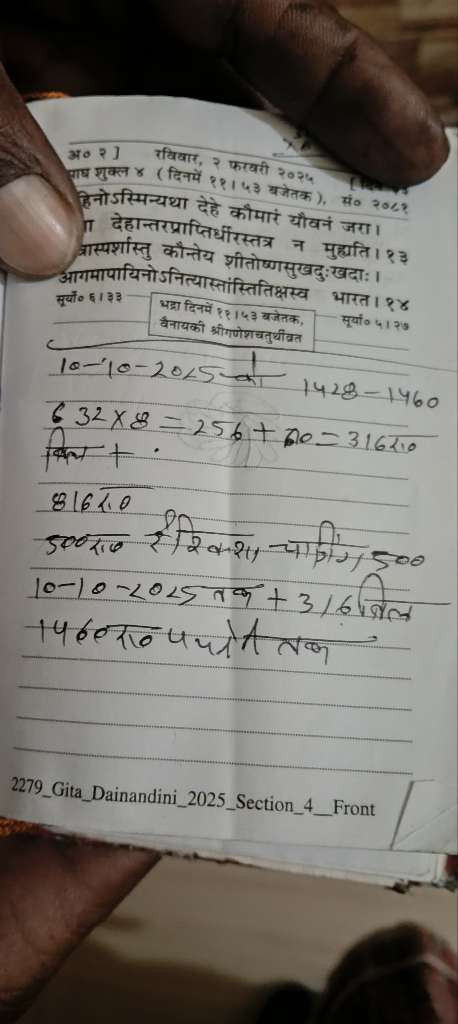 अ० २] रविवार, २ फरवरी २०२५
माघ शुक्ल ४ (दिनमें ११।५३ बजेतक), सं० २०८१
हिनोऽस्मिन्यथा देहे कौमारं यौवनं जरा।
देहान्तरप्राप्तिर्धीरस्तत्र न मुह्यति।१३
त्रास्पर्शास्तु कौन्तेय शीतोष्णसुखदुःखदाः।
आगमापायिनोऽनित्यास्तांस्तितिक्षस्व भारत।१४
सूर्यो० ६।३३ भद्रा दिनमें ११।५३ बजेतक, सूर्या० ५।२७
वैनायकी श्रीगणेशचतुर्थीव्रत
10-10-2025 को 1428-1460
32×8=256+60=316रु0
बिल +
816रु0
500रु0 ई रिक्शा चार्जिंग 500
10-10-2025 तक + 316 बिल
1460रु0 तक
2279_Gita_Dainandini_2025_Section_4__Front